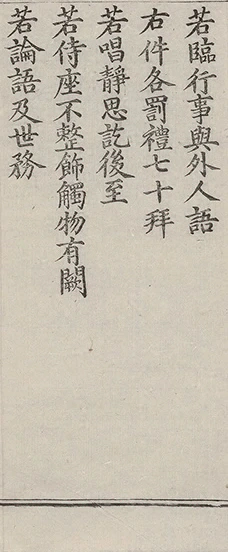 若臨行事與外人語
右件各罰禮七十拜
若唱靜思訖後至
若侍座不整飾觸物有闕
若論語及世務